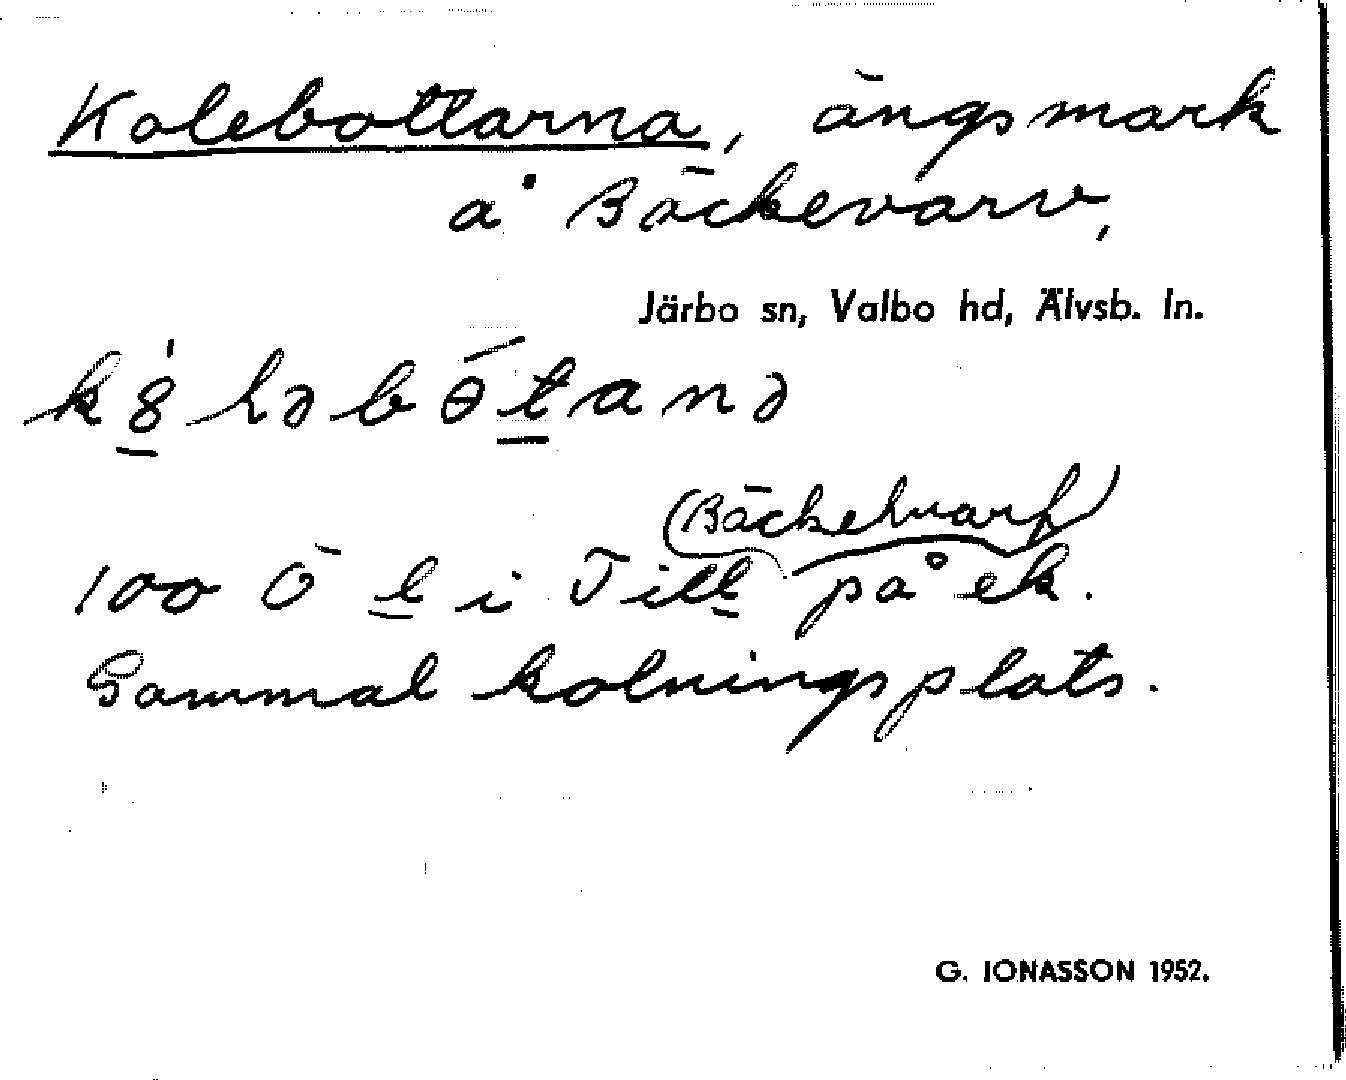 Kolebottarna, ängsmark
å Bäckevarv,
Järbo sn, Valbo hd, Älvsb. ln.
k8́ləbɵ́tanə
(Bäckehvarf)
100 Ö l i Till på ek.
Gammal kolningsplats.
G. IONASSON 1952.